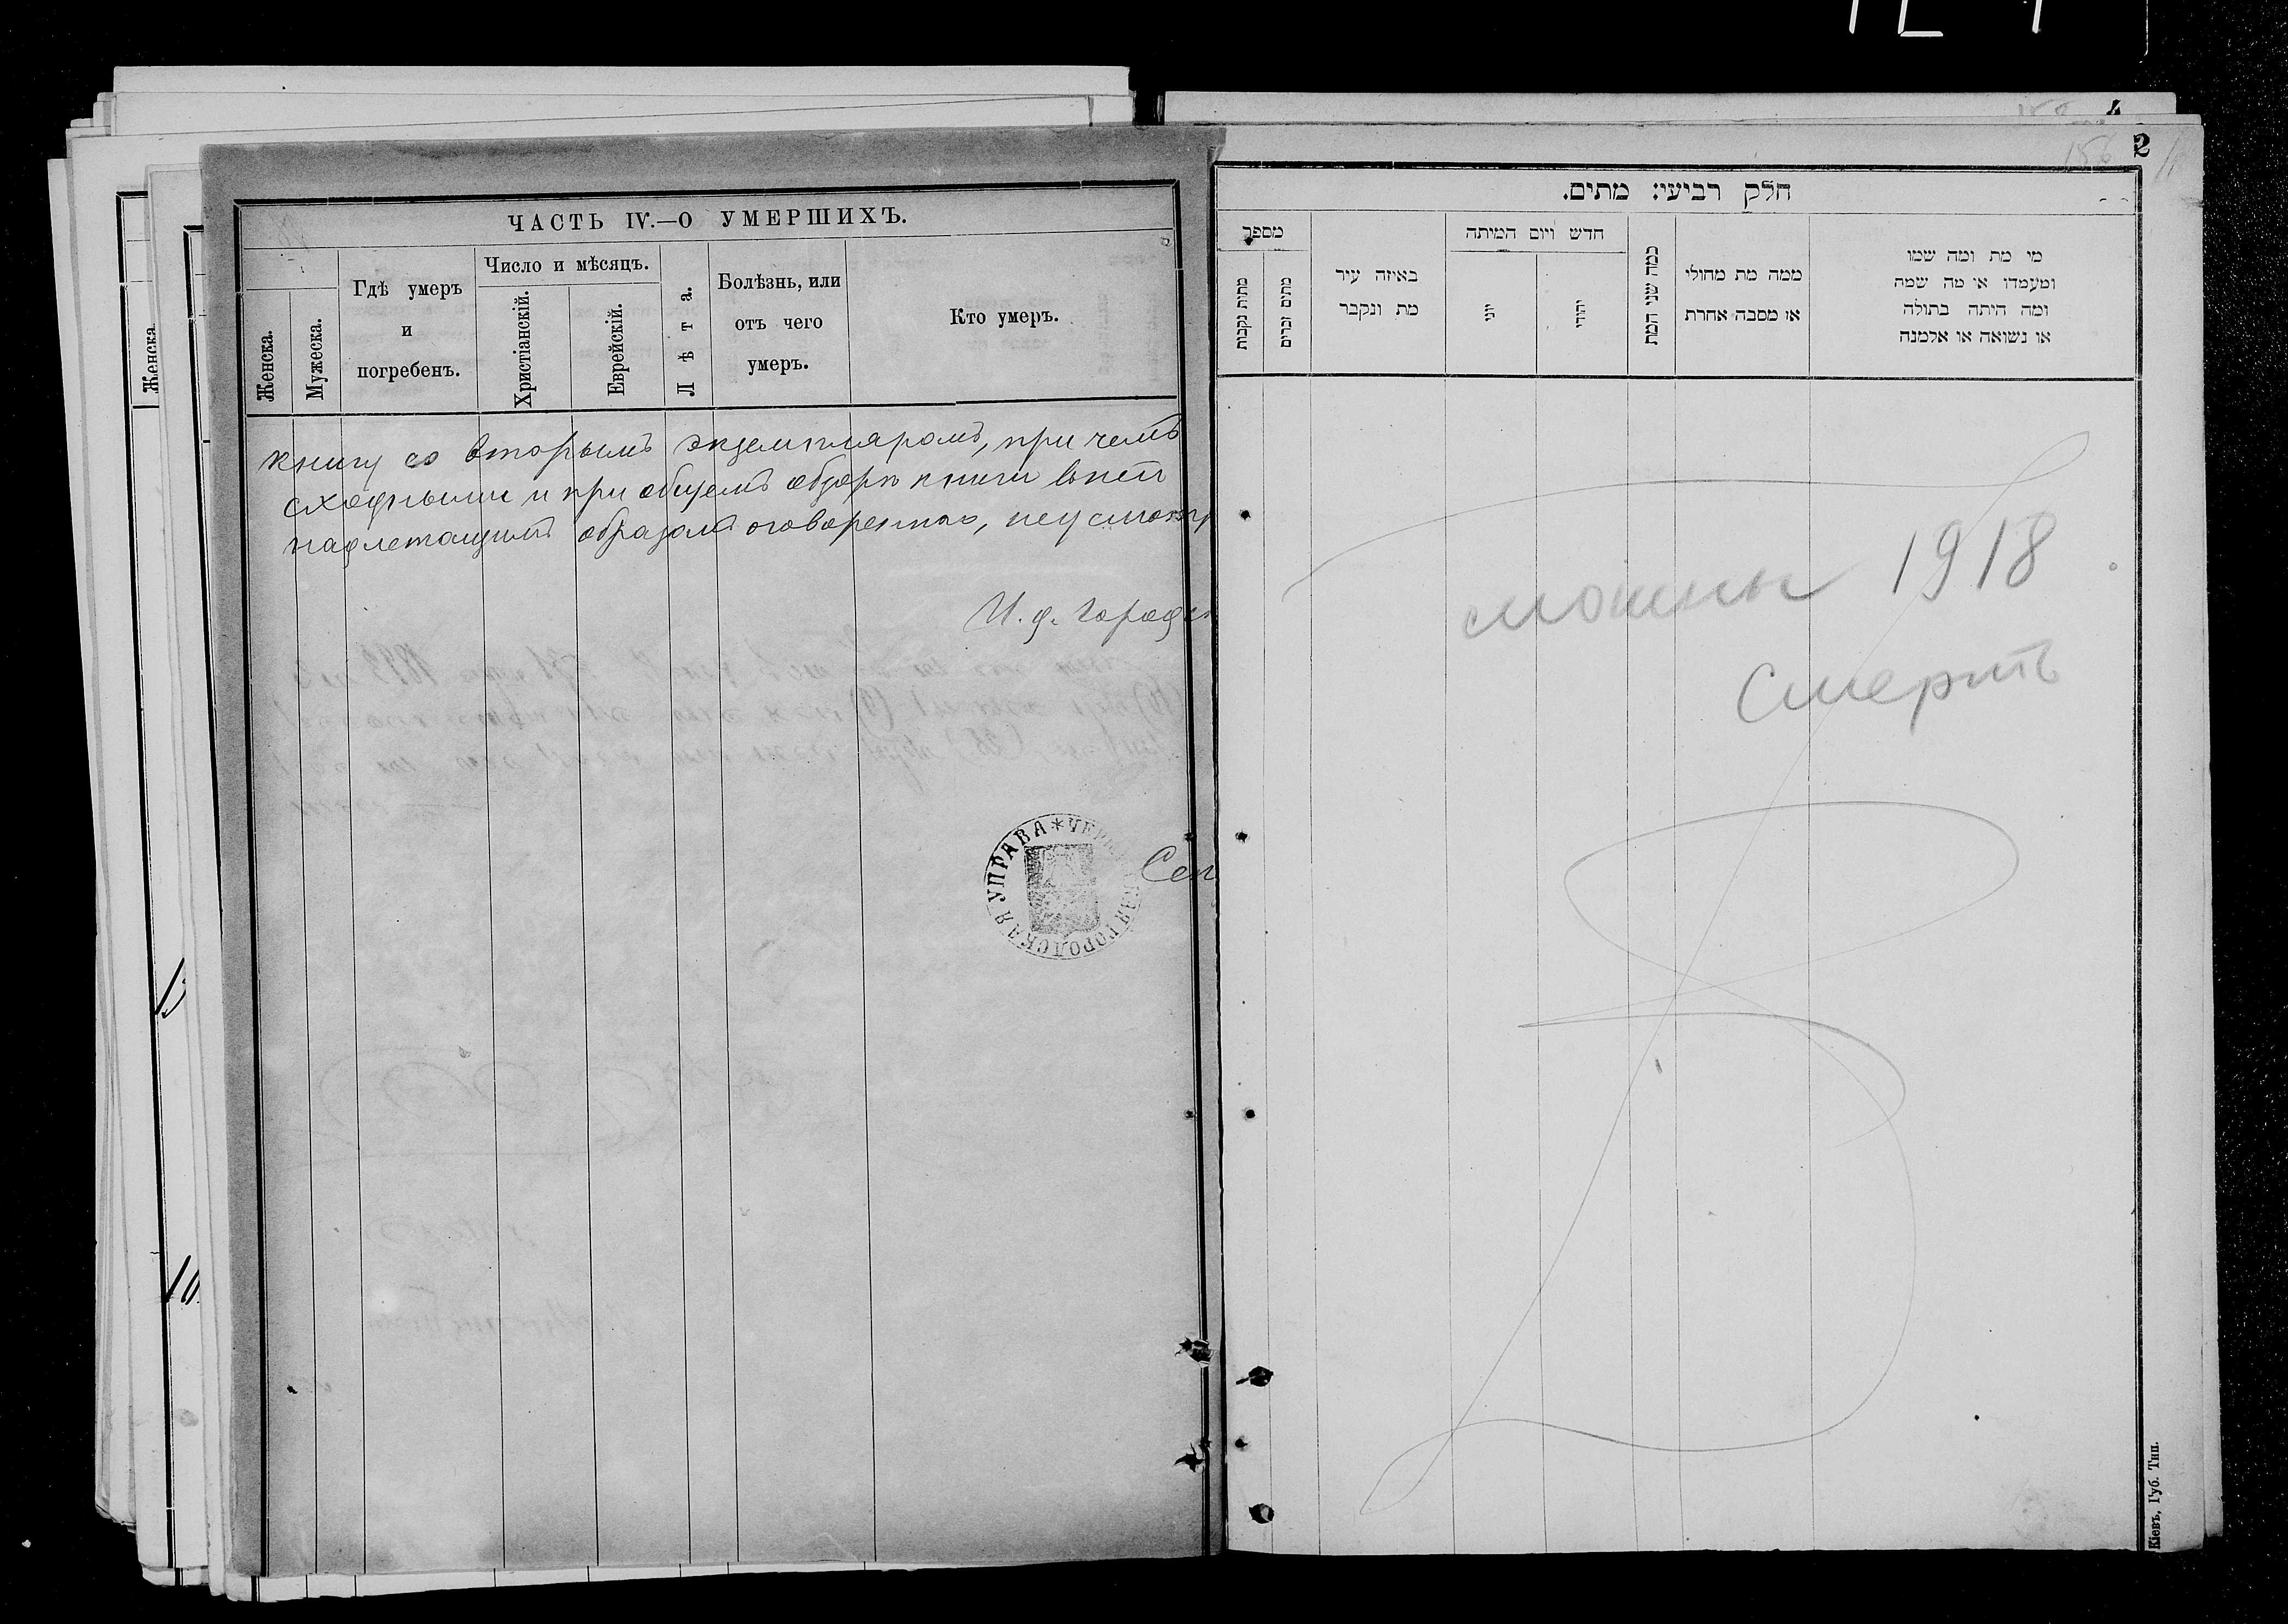 ЧАСТЬ IV.—О УМЕРШИХЪ.
Женска.
Мужеска.
Гдѣ умеръ
и
погребенъ.
Число и мѣсяцъ.
Христіанскій.
Еврейскій.
Лѣта.
Болѣзнь, или
отъ чего
умеръ.
Кто умеръ.
книгу со вторымъ экземпляромъ, при чемъ
сходными и при общемъ обзорѣ книги въ ней
надлежащимъ образомъ оговоренныхъ, неусмотр
И. д. Город
УПРАВА * ЧЕР КАЯ ГОРОДСКАЯ
Сек
Женска
13
10
2
חלק רביעי: מתים.
מספר
מתות נקבות
מתים זכרים
באיזה עיר
מת ונקבר
חדש ויום המיתה
יוני
יהודי
כמה שני המת
ממה מת מחולי
או מסבה אחרת
מי מת ומה שמו
ומעמדו או מה שמה
ומה היתה בתולה
או נשואה או אלמנה
1918
Смерть
Кіевъ, Губ. Тип.